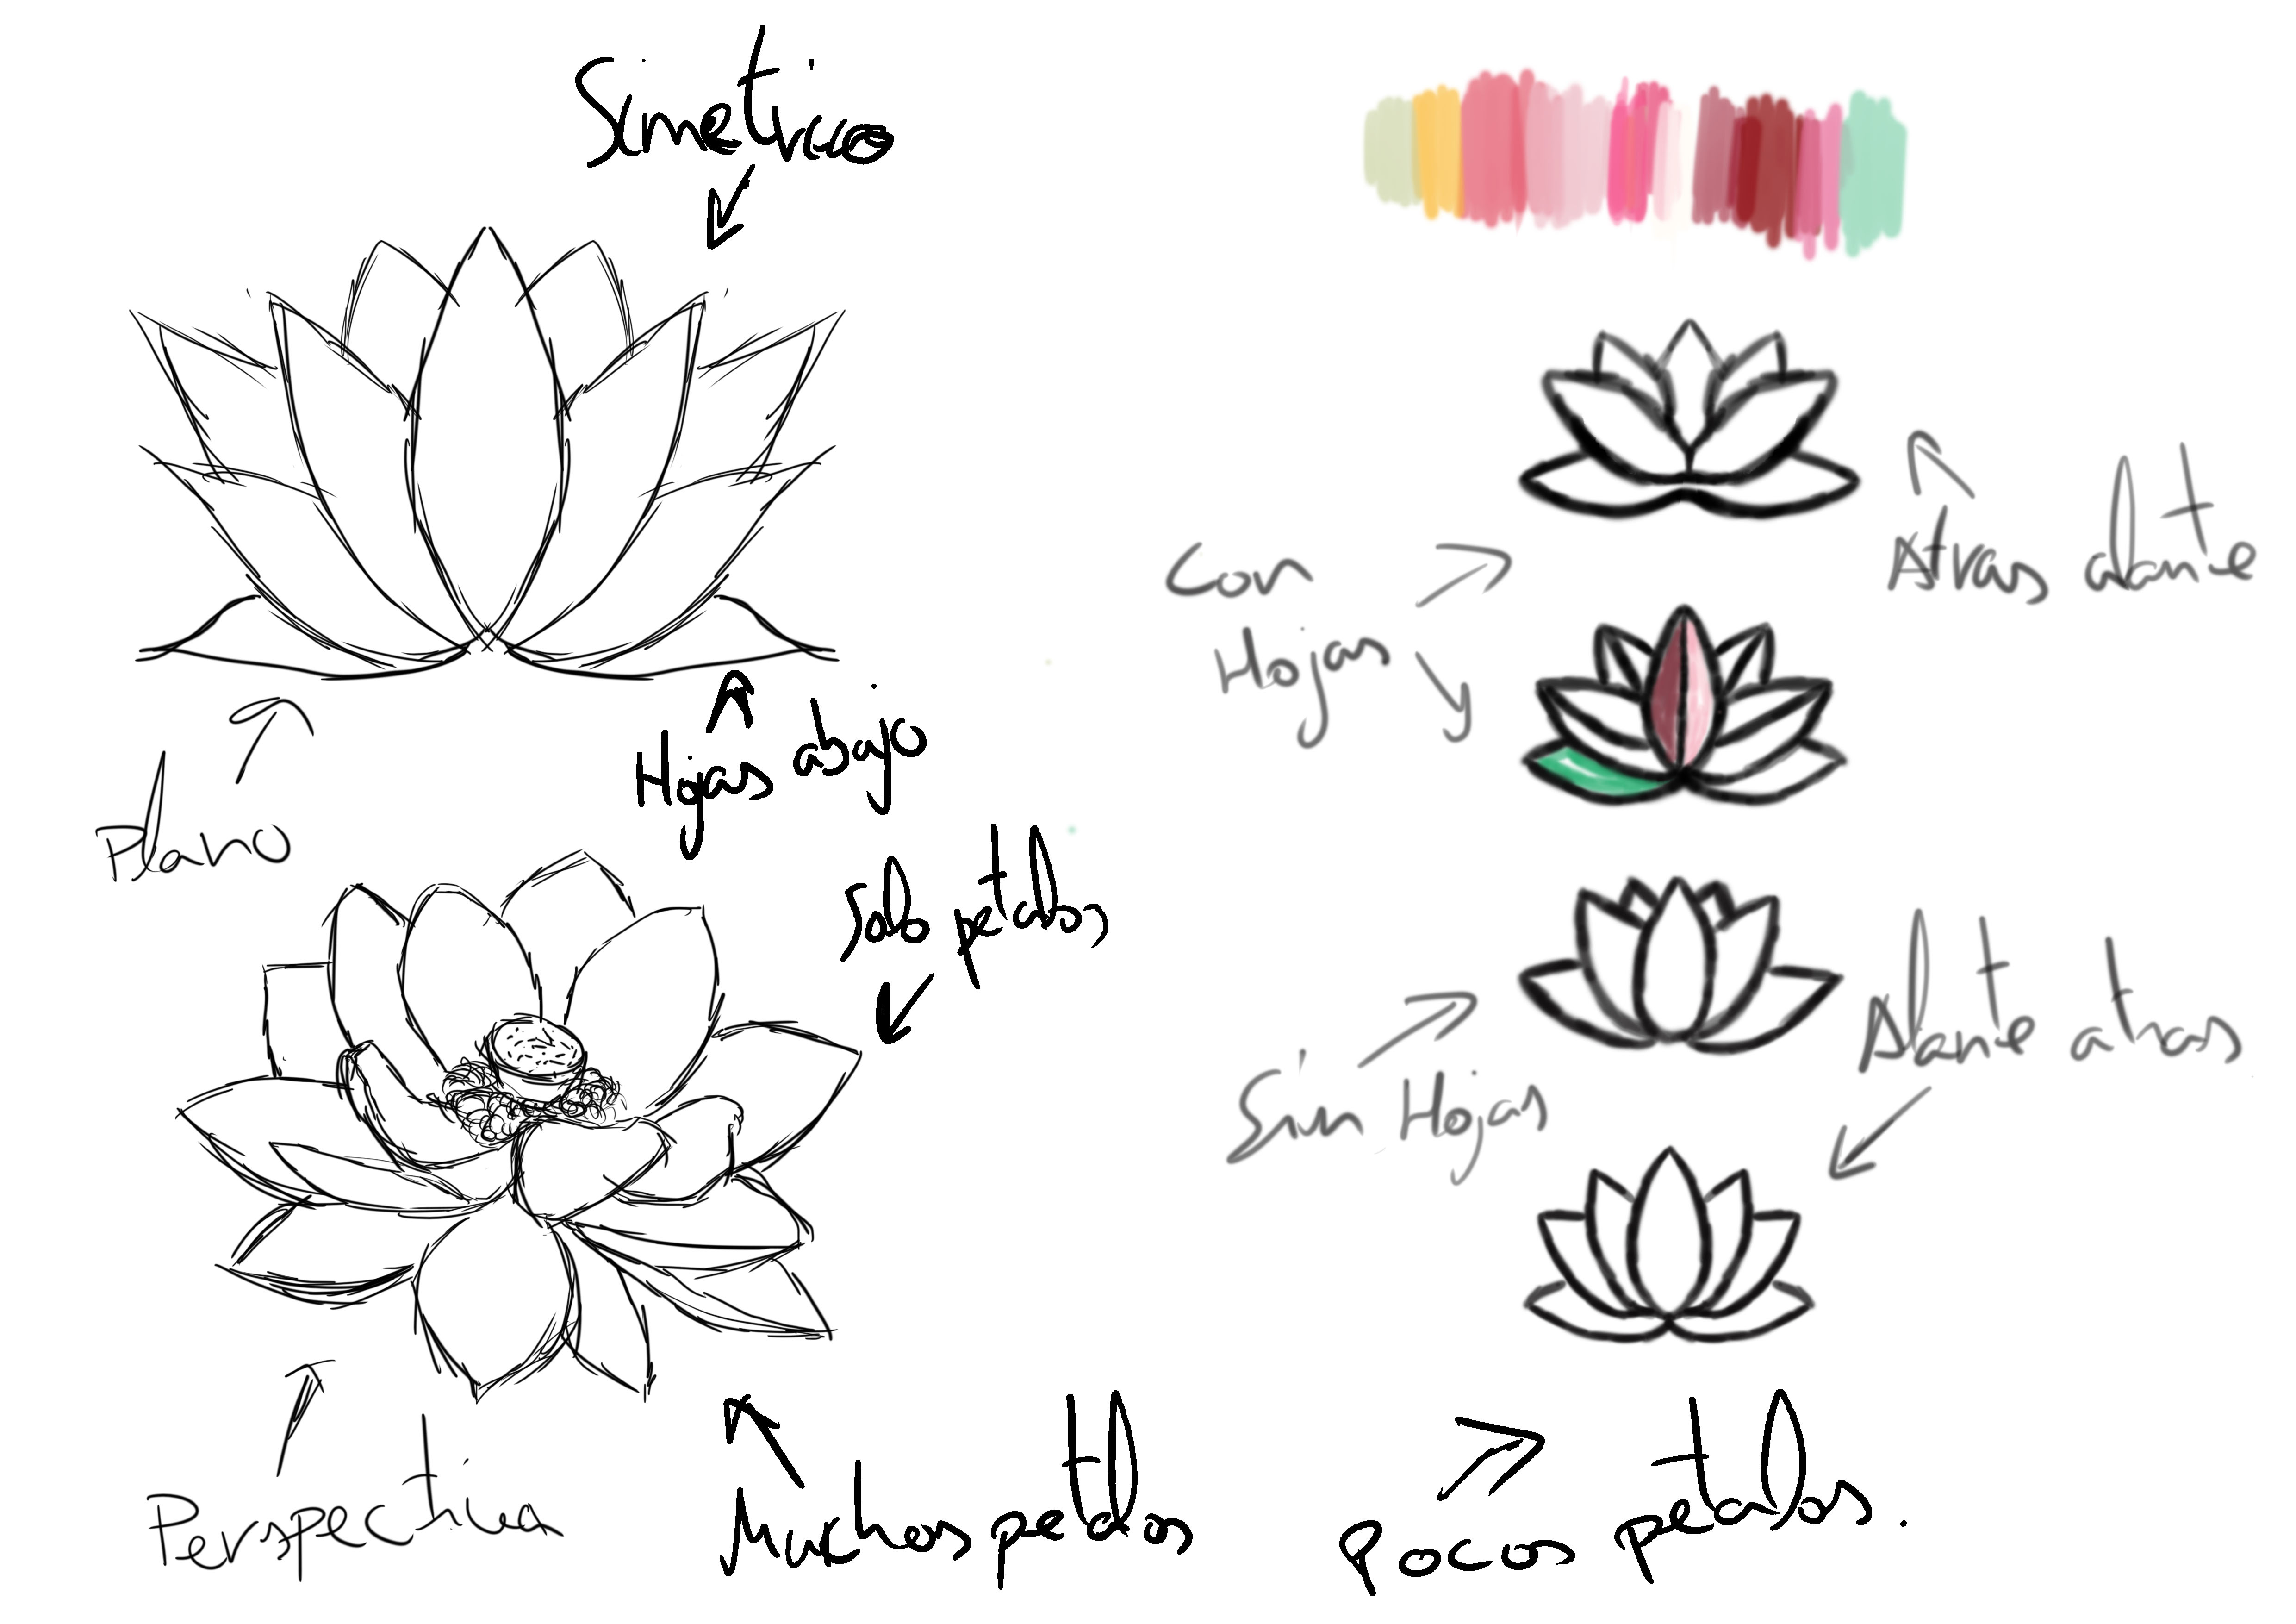 Simetrico
Hojas abajo
Plano
Solo petalos
Perspectiva
Muchos petalos
Con
Hojas
Atras alante
Sin Hojas
Alante atras
Pocos petalos.